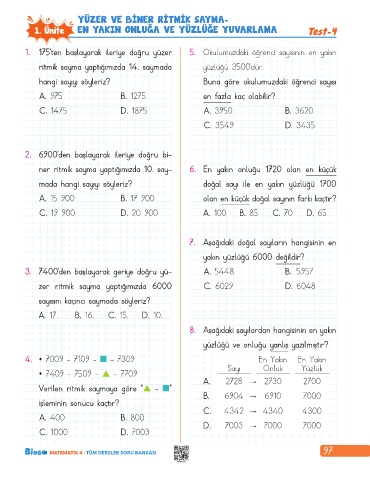 1. Ünite
YÜZER VE BİNER RİTMİK SAYMA-
EN YAKIN ONLUĞA VE YÜZLÜĞE YUVARLAMA
Test-4
1. 175'ten başlayarak ileriye doğru yüzer
ritmik sayma yaptığımızda 14. saymada
hangi sayıyı söyleriz?
A. 975 B. 1275
C. 1475 D. 1875
2. 6900'den başlayarak ileriye doğru bi-
ner ritmik sayma yaptığımızda 10. say-
mada hangi sayıyı söyleriz?
A. 15 900 B. 17 900
C. 19 900 D. 20 900
3. 7400'den başlayarak geriye doğru yü-
zer ritmik sayma yaptığımızda 6000
sayısını kaçıncı saymada söyleriz?
A. 17. B. 16. C. 15. D. 10.
4. • 7009 - 7109 - ■ - 7309
• 7409 - 7509 - ▲ - 7709
Verilen ritmik saymaya göre "▲ - ■"
işleminin sonucu kaçtır?
A. 400 B. 800
C. 1000 D. 7003
5. Okulumuzdaki öğrenci sayısının en yakın
yüzlüğü 3500'dür.
Buna göre okulumuzdaki öğrenci sayısı
en fazla kaç olabilir?
A. 3950 B. 3620
C. 3549 D. 3435
6. En yakın onluğu 1720 olan en küçük
doğal sayı ile en yakın yüzlüğü 1700
olan en küçük doğal sayının farkı kaçtır?
A. 100 B. 85 C. 70 D. 65
7. Aşağıdaki doğal sayıların hangisinin en
yakın yüzlüğü 6000 değildir?
A. 5448 B. 5957
C. 6029 D. 6048
8. Aşağıdaki sayılardan hangisinin en yakın
yüzlüğü ve onluğu yanlış yazılmıştır?
En Yakın En Yakın
Sayı Onluk Yüzlük
A. 2728 → 2730 2700
B. 6904 → 6910 7000
C. 4342 → 4340 4300
D. 7003 → 7000 7000
BİNGO MATEMATİK 4 - TÜM DERSLER SORU BANKASI
97